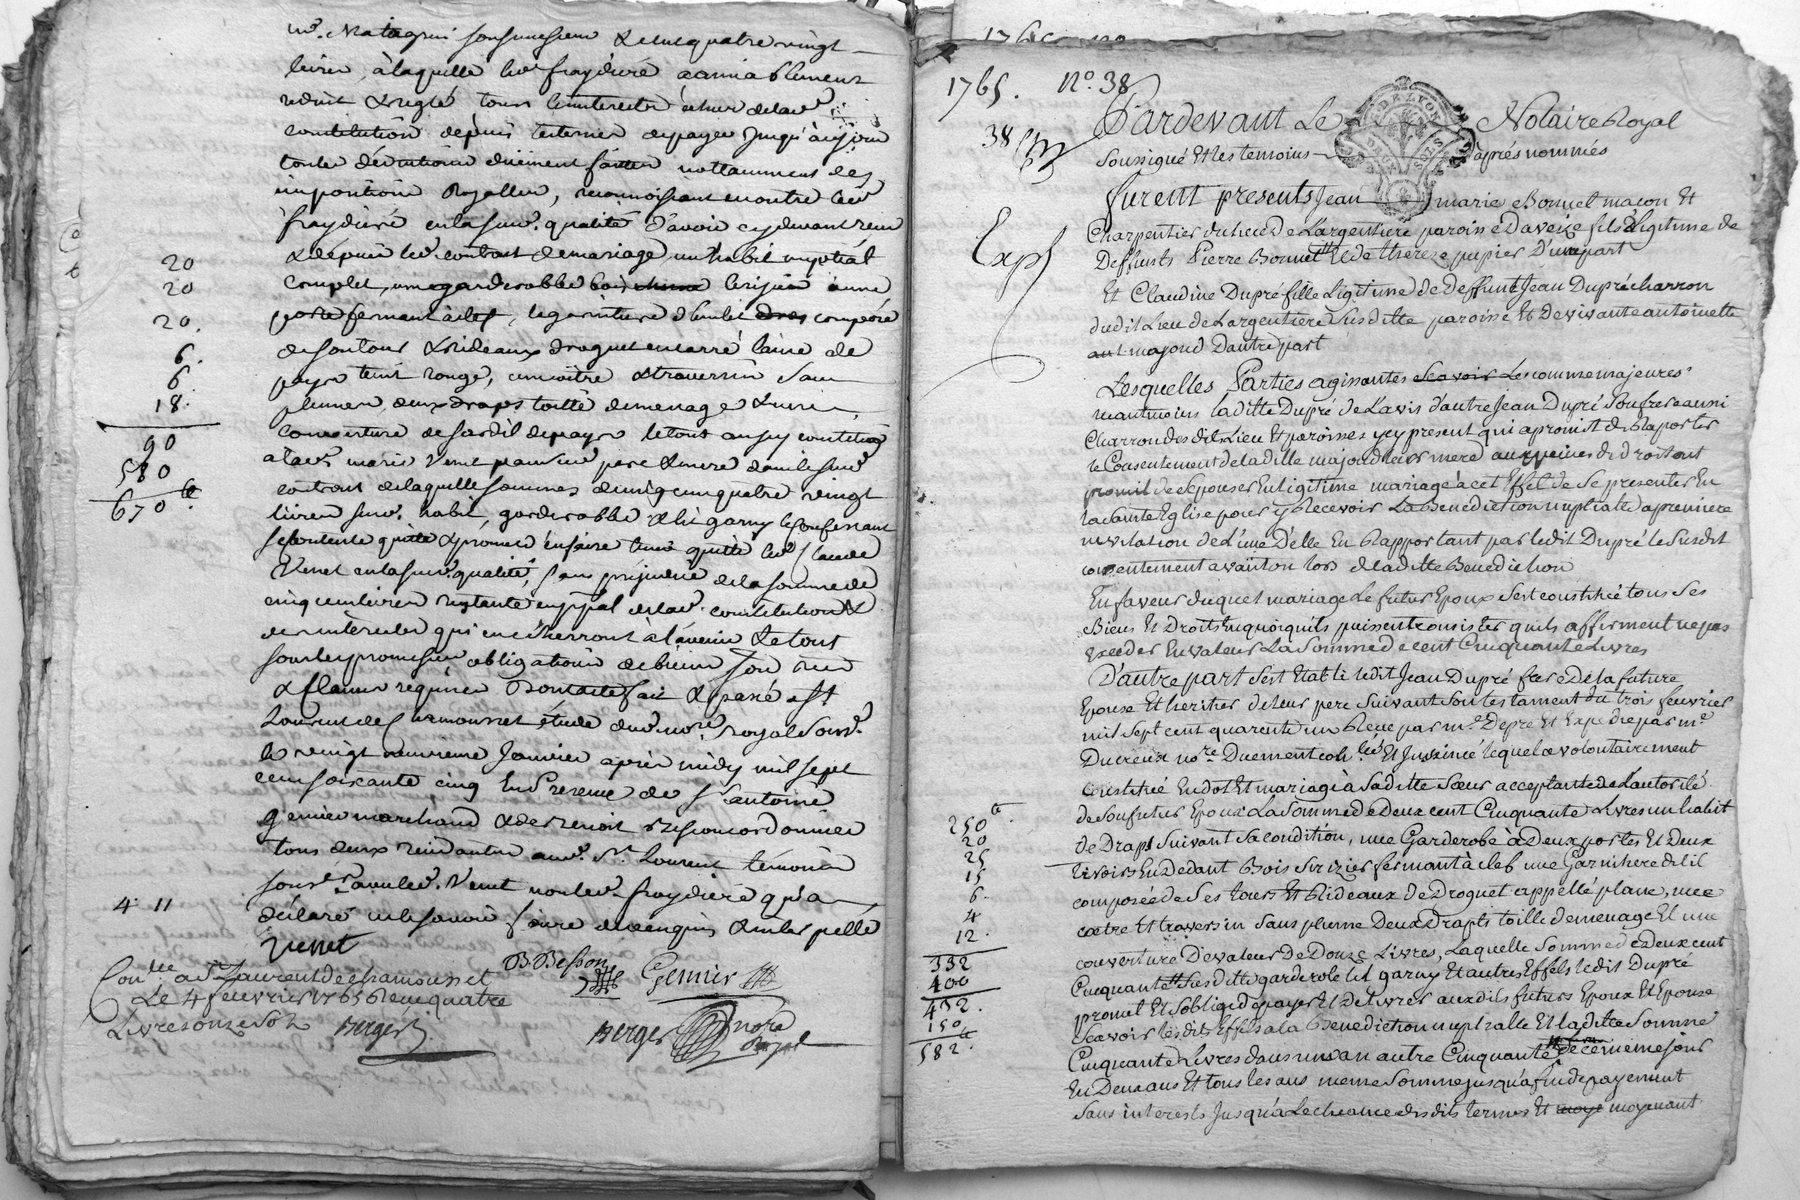 livres, à laquelle led. fraydiere a amiablement
réduit & reglé tous les interests échus de lad.
constitution depuis
toute déduction duement faitte nottamment des
impositions Royalles, reconnoissant en outre led.
fraydiere en lasusd. qualité d'avoir cy devant reçu
& depuis led. contrat de mariage un habit nuptial
20
complet, une garderobbe bois cerisier à une
20
porte fermant à clef, la garniture d'un lit composée
20.
de son tour & rideaux droguet encarré laine de
6.
pays teint rouge, un coitre & traversin sans
6.
plumes, deux draps toille de menage & une
18.
couverture de sardil de pays le tout aussy constitué
90
580
contrat de laquelle somme de cinq cent quatre vingt
670. ₶
livres susd. habit, garderobbe & lit garny
Venet en lasusd. qualité, sans préjudice de la somme de
cinq cent livres restante en p.pal de lad. constitution &
des interests qui en écherront à l'avenir Le tout
sous les promesses obligations de biens
& clauses requises Dont acte fait & passé à St
Laurent de Chamousset étude dud. no.re Royal Sous.é
le vingt neuvieme Janvier après midy mil sept
cent soixante cinq En Presence de S.r antoine
Genier marchand & de Benoit Besson cordonnier
tous deux résidants aud. St. Laurent témoins
4 11
déclaré ne le savoir faire de ce enquis & interpellé
Venet
B. Besson
Genier
Con.lé a St Laurent de chamousset
Le 4 feuvrier 1765 Reçu quatre
Livres onze Sols Berger
Berger no.re Royal
1765. N.o 38
38
Pardevant Le Notaire Royal
Soussigné Et les temoins après nommés
DE LYON
furent presents Jean marie Bonnet maçon Et
Exp.
Charpentier du lieu de Largentiere paroisse D'aveize fils Légitime de
Deffunts Pierre Bonnet Et de therese pupier D'une part
Et Claudine Dupré fille Légitime de Deffunt Jean Dupré charron
dudit Lieu de Largentiere Susditte paroisse Et De vivante antoinette
majoud D'autre part
Lesquelles Parties agissantes Scavoir Les comme majeures
neantmoins laditte Dupré de L'avis d'autre Jean Dupré Son frere aussi
Charron desdits Lieu Et paroisses icy present qui a promis de Raporter
le Consentement de la ditte majoud leur mere aux peines de droit ont
promis de s'épouser En Légitime mariage à cet Effet de Se presenter En
la Sainte Eglise pour y Recevoir La Benediction nuptialle a premiere
De L'une D'elle En Rapportant par ledit Dupré le Susdit
consentement avant ou lors de laditte Benediction
En faveur duquel mariage Le futur Epoux S'est constitué tous Ses
Biens Et Droits En quoi qu'ils puissent consister qu'ils affirment ne pas
Exceder En valeur La Somme de cent Cinquante Livres
D'autre part S'est Etabli ledit Jean Dupré frere De la future
Epouse Et heritier de leur pere Suivant Son testament du trois fevrier
mil Sept cent quarente un Recu par m.e Depre Et Expedié par m.e
Ducreux no.re Duement con.lé Et Insinué lequel a volontairement
constitué En dot Et mariage à Saditte Sœur acceptante de L'autorité
250 ₶.
de Son futur Epoux La Somme de Deux cent Cinquante Livres un habit
20
de Draps Suivant Sa condition, une Garderobe à Deux portes Et Deux
25
tiroirs En Dedant Bois Serizier fermant à clef une Garniture de lit
15
composée de Ses tours Et Rideaux de Droguet appellé plane, une
6.
coetre Et traversin Sans plume Deux Drapts toille de menage Et une
4
12.
couverture De valeur de Douze Livres, Laquelle Somme de Deux cent
332
Cinquante ₶ Susditte garderobe lit garny Et autres Effets ledit Dupré
400
promet Et S'oblige de payer Et Delivrer aux dits futurs Epoux Et Epouse
432.
Scavoir lesdits Effets a la Benediction nuptialle Et laditte Somme
150
Cinquante Livres dans un an autre Cinquante De ce même jour
582. ₶
En Deux ans Et tous les ans meme Somme jusqu'a fin de payement
Sans interests Jusqu'a L'echeance desdits termes Et moye moyenant